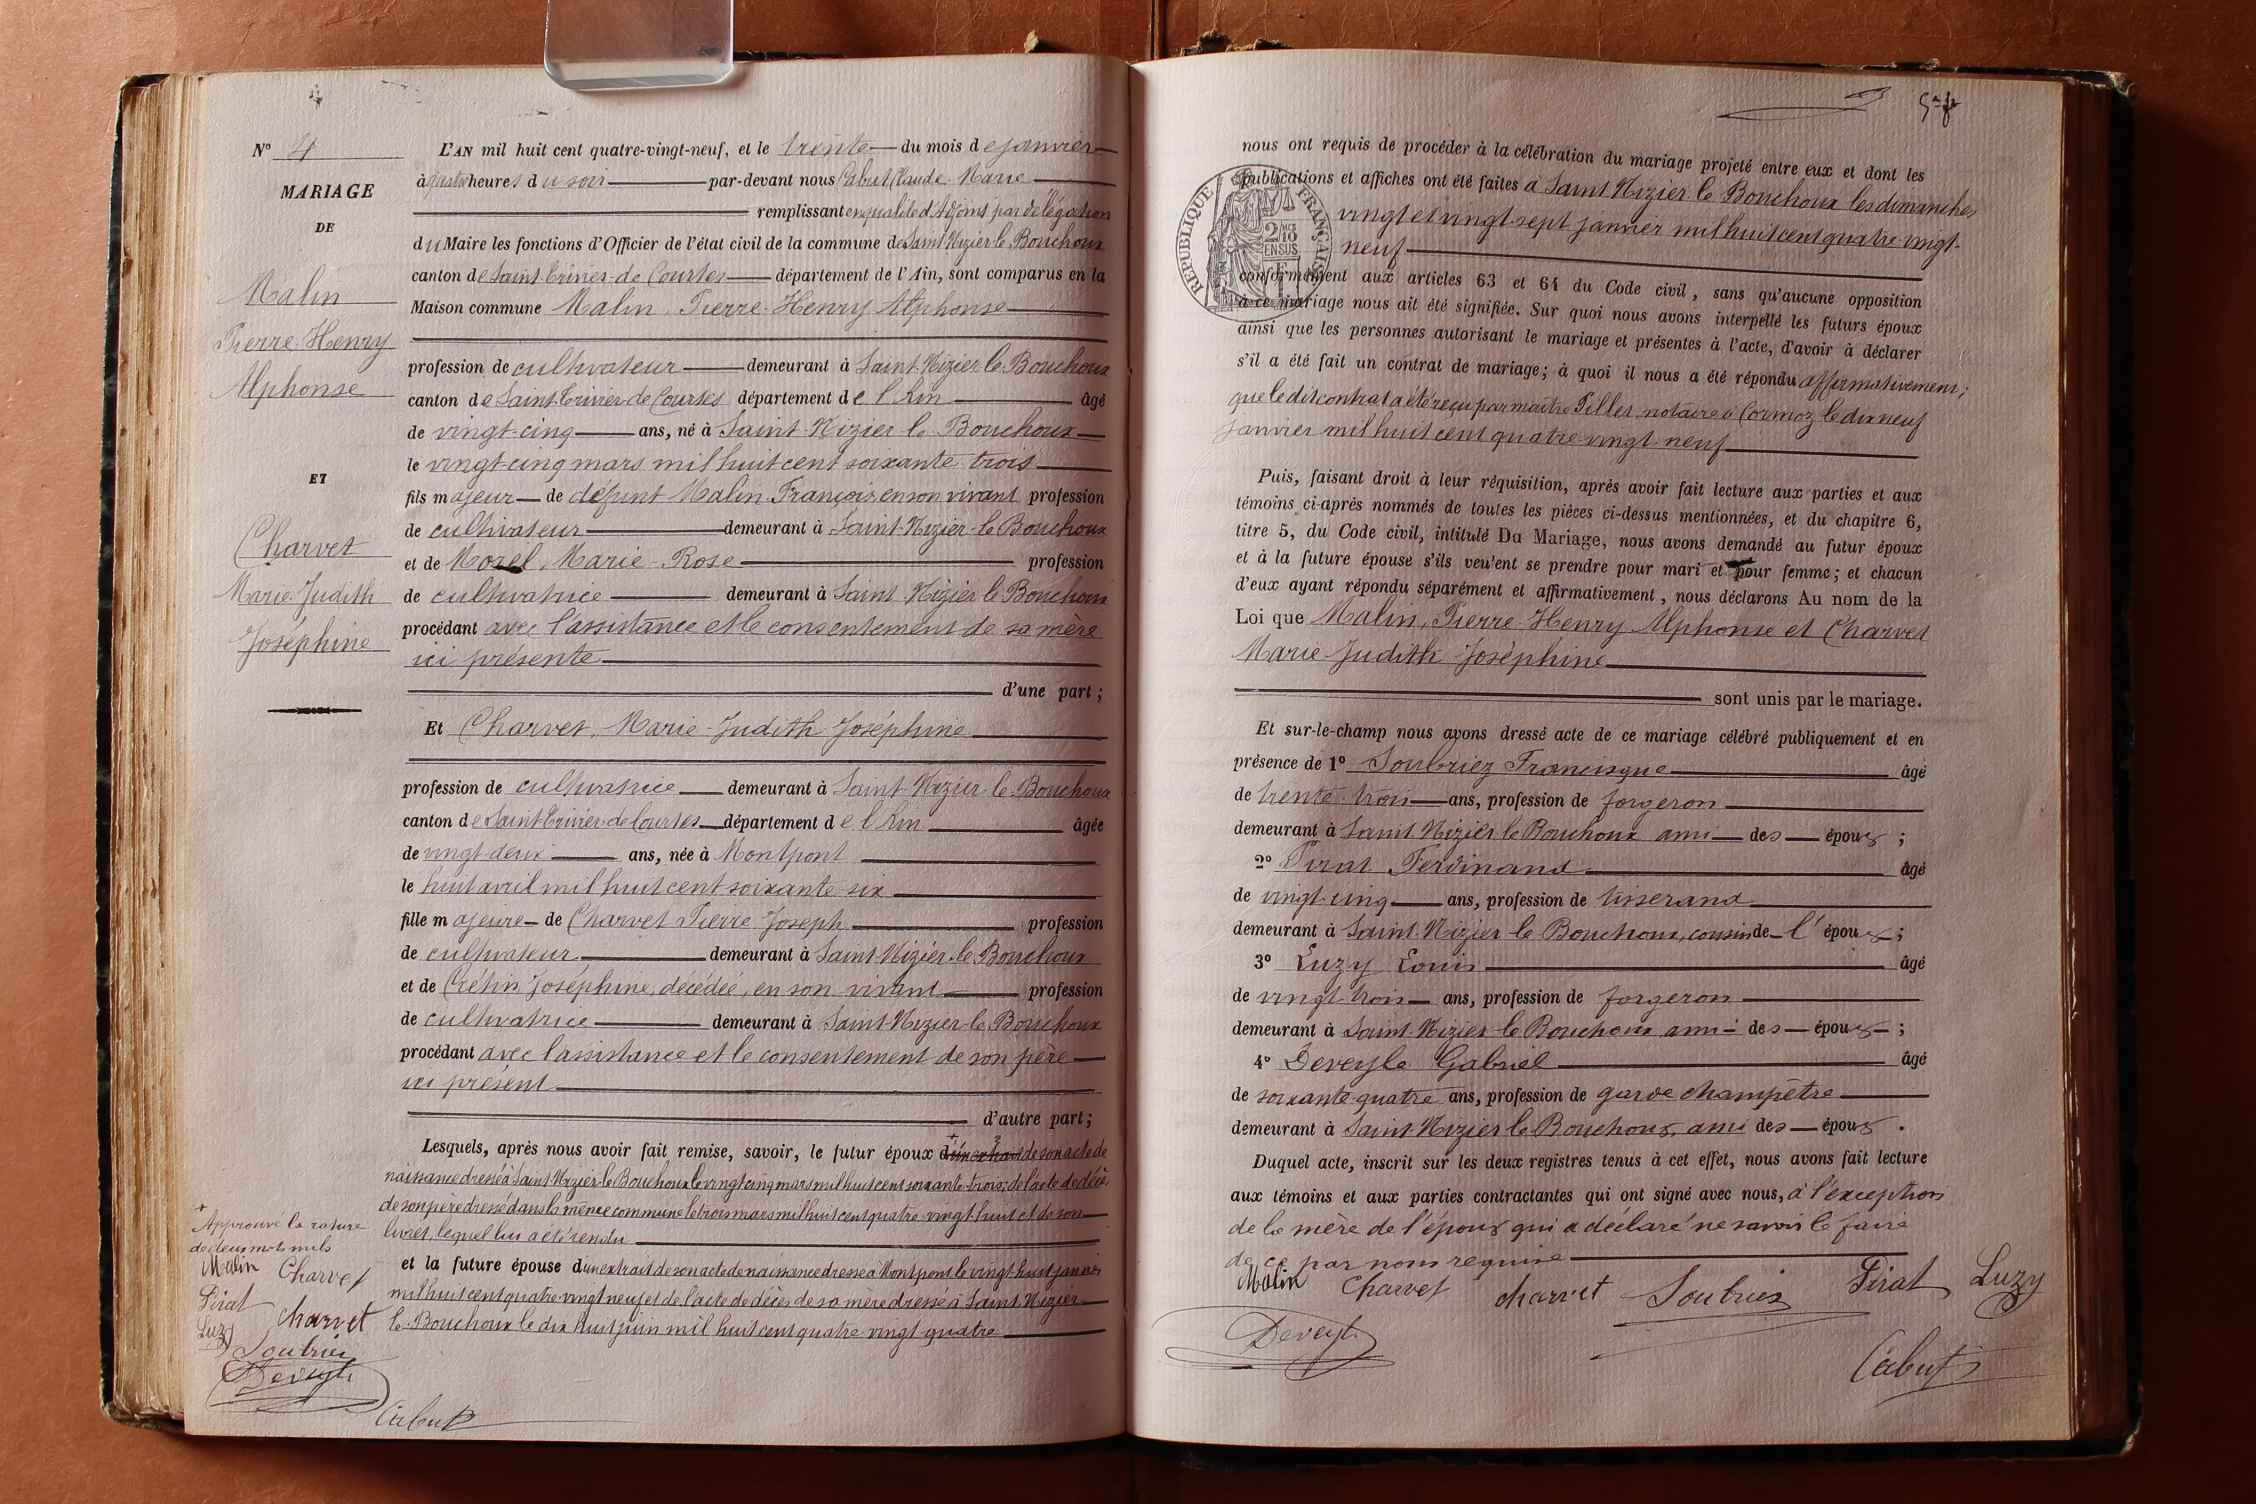 N° 4
MARIAGE
DE
Malin
Pierre-Henry
Alphonse
ET
Charvet
Marie-Judith
Joséphine
L'AN mil huit cent quatre-vingt-neuf, et le trente du mois de janvier
à quatre heures du soir par-devant nous Cabut Claude-Marie
remplissant en qualité d'Adjoint par délégation
du Maire les fonctions d'Officier de l'état civil de la commune de Saint-Nizier-le-Bouchoux
canton de Saint-Trivier-de-Courtes département de l'Ain, sont comparus en la
Maison commune Malin, Pierre-Henry Alphonse
profession de cultivateur demeurant à Saint-Nizier-le-Bouchoux
canton de Saint-Trivier-de-Courtes département de l'Ain âgé
de vingt-cinq ans, né à Saint-Nizier-le-Bouchoux
le vingt-cinq mars mil huit cent soixante-trois
fils majeur de défunt Malin François en son vivant profession
de cultivateur demeurant à Saint-Nizier-le-Bouchoux
et de Morel, Marie-Rose profession
de cultivatrice demeurant à Saint-Nizier-le-Bouchoux
procédant avec l'assistance et le consentement de sa mère
ici présente
d'une part ;
Et Charvet, Marie-Judith Joséphine
profession de cultivatrice demeurant à Saint-Nizier-le-Bouchoux
canton de Saint-Trivier-de-Courtes département de l'Ain âgée
de vingt-deux ans, née à Montpont
le huit avril mil huit cent soixante-six
fille majeure de Charvet Pierre Joseph profession
de cultivateur demeurant à Saint-Nizier-le-Bouchoux
et de Crétin Joséphine, décédée, en son vivant profession
de cultivatrice demeurant à Saint-Nizier-le-Bouchoux
procédant avec l'assistance et le consentement de son père
ici présent
d'autre part ;
Lesquels, après nous avoir fait remise, savoir, le futur époux d'un extrait de son acte de
naissance dressé à Saint-Nizier-le-Bouchoux le vingt-cinq mars mil huit cent soixante-trois; de l'acte de décès
de son père dressé dans la même commune le trois mars mil huit cent quatre-vingt-huit et de son
livret, lequel lui a été rendu
et la future épouse d'un extrait de son acte de naissance dressé à Montpont le vingt-huit janvier
mil huit cent quatre-vingt-neuf et de l'acte de décès de sa mère dressé à Saint-Nizier
le-Bouchoux le dix huit juin mil huit cent quatre-vingt-quatre
+ Approuvé la rature
de deux mots nuls
Malin Charvet
Pirat charvet
Luzy
Soubriez
Deveyle
Cabut
nous ont requis de procéder à la célébration du mariage projeté entre eux et dont les
publications et affiches ont été faites à Saint-Nizier-le-Bouchoux les dimanches
vingt et vingt-sept janvier mil huit cent quatre-vingt-
neuf
RÉPUBLIQUE FRANÇAISE
2/10 EN SUS
conformément aux articles 63 et 64 du Code civil, sans qu'aucune opposition
à ce mariage nous ait été signifiée. Sur quoi nous avons interpellé les futurs époux
ainsi que les personnes autorisant le mariage et présentes à l'acte, d'avoir à déclarer
s'il a été fait un contrat de mariage; à quoi il nous a été répondu affirmativement;
que le dit contrat a été reçu par maître Pillet, notaire à Cormoz le dix neuf
janvier mil huit cent quatre-vingt-neuf
Puis, faisant droit à leur réquisition, après avoir fait lecture aux parties et aux
témoins ci-après nommés de toutes les pièces ci-dessus mentionnées, et du chapitre 6,
titre 5, du Code civil, intitulé Du Mariage, nous avons demandé au futur époux
et à la future épouse s'ils veulent se prendre pour mari et pour femme; et chacun
d'eux ayant répondu séparément et affirmativement, nous déclarons Au nom de la
Loi que Malin, Pierre-Henry Alphonse et Charvet
Marie-Judith Joséphine
sont unis par le mariage.
Et sur-le-champ nous avons dressé acte de ce mariage célébré publiquement et en
présence de 1° Soubriez Francisque âgé
de trente-trois ans, profession de forgeron
demeurant à Saint-Nizier-le-Bouchoux ami des époux ;
2° Pirat Ferdinand âgé
de vingt-cinq ans, profession de tisserand
demeurant à Saint-Nizier-le-Bouchoux, cousin de l'époux ;
3° Luzy Louis âgé
de vingt-trois ans, profession de forgeron
demeurant à Saint-Nizier-le-Bouchoux ami des époux ;
4° Deveyle Gabriel âgé
de soixante-quatre ans, profession de garde champêtre
demeurant à Saint-Nizier-le-Bouchoux, ami des époux.
Duquel acte, inscrit sur les deux registres tenus à cet effet, nous avons fait lecture
aux témoins et aux parties contractantes qui ont signé avec nous, à l'exception
de la mère de l'époux qui a déclaré ne savoir le faire
de ce par nous requise
Malin Charvet charvet Soubriez Pirat Luzy
Deveyle
Cabut